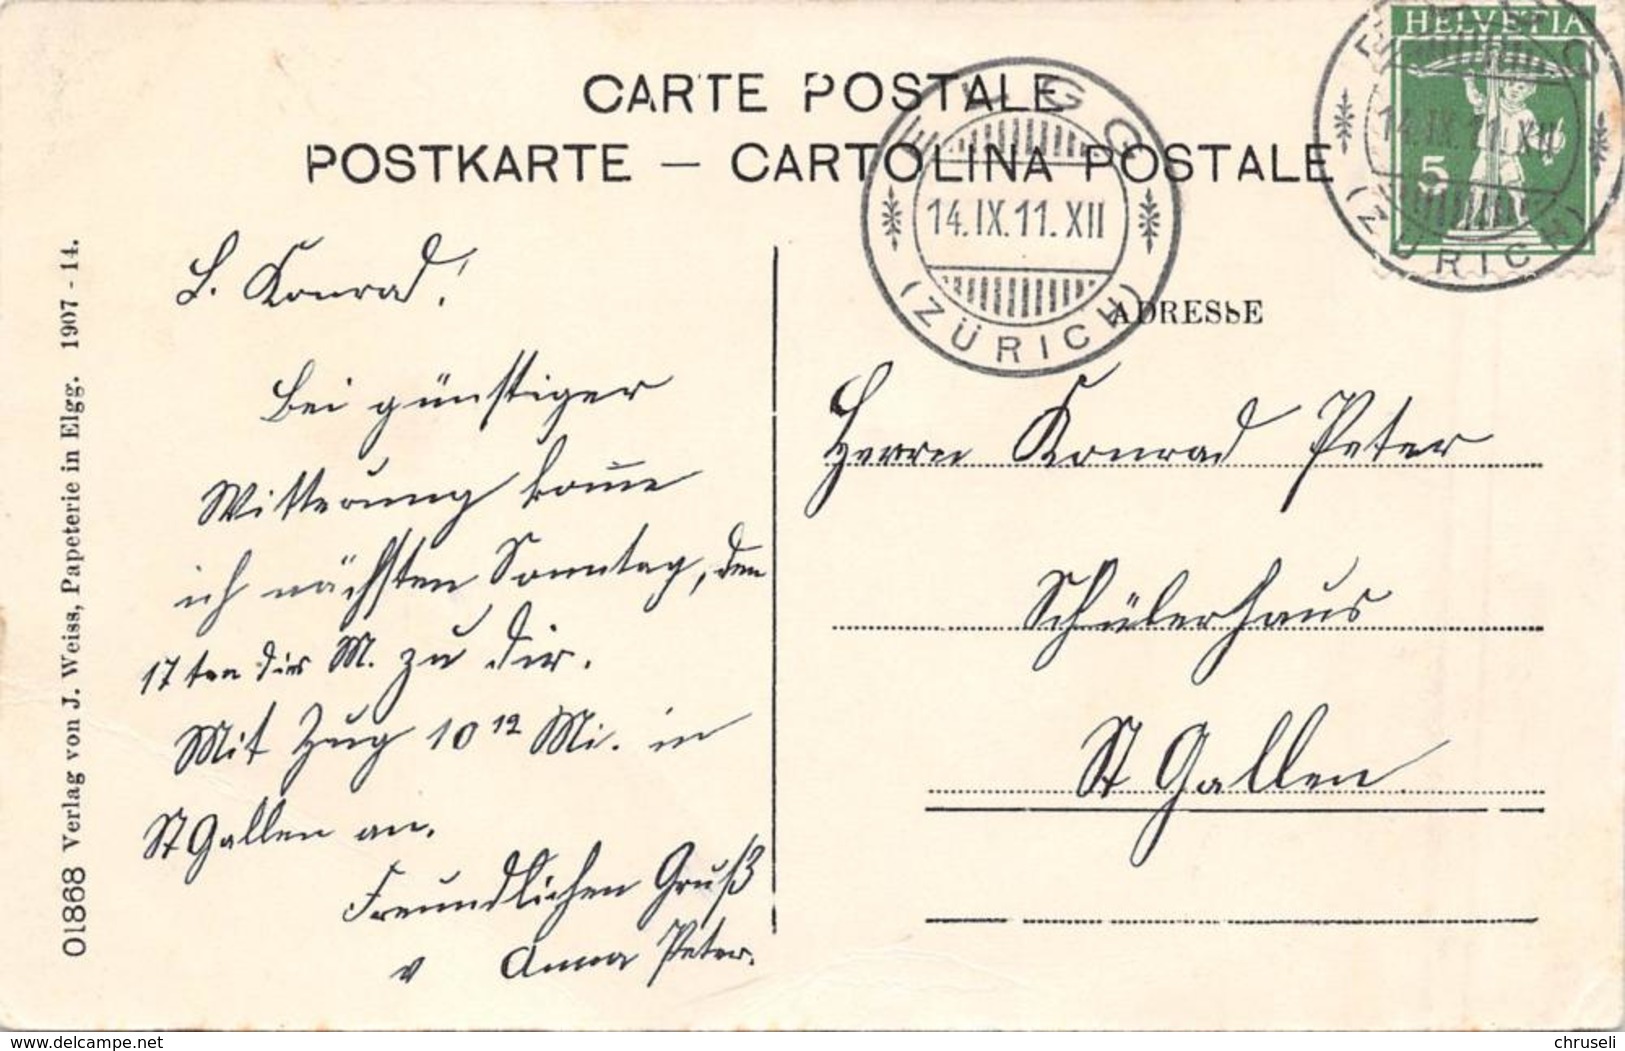 CARTE POSTALE
POSTKARTE — CARTOLINA POSTALE
HELVETIA
5
ELGG
14.IX.11.XII
(ZÜRICH)
ELGG
14.IX.11.XII
(ZÜRICH)
ADRESSE
01868 Verlag von J. Weiss, Papeterie in Elgg. 1907 - 14.
L. Konrad!
Bei günstiger
Witterung kom̄e
ich nächsten Sonntag, den
17ten dies M. zu dir.
Mit Zug 10 12 Mi. in
St Gallen an.
Freundlichen Gruß
v Anna Peter.
Herrn Konrad Peter
Schülerhaus
St Gallen
www.delcampe.net
chruseli